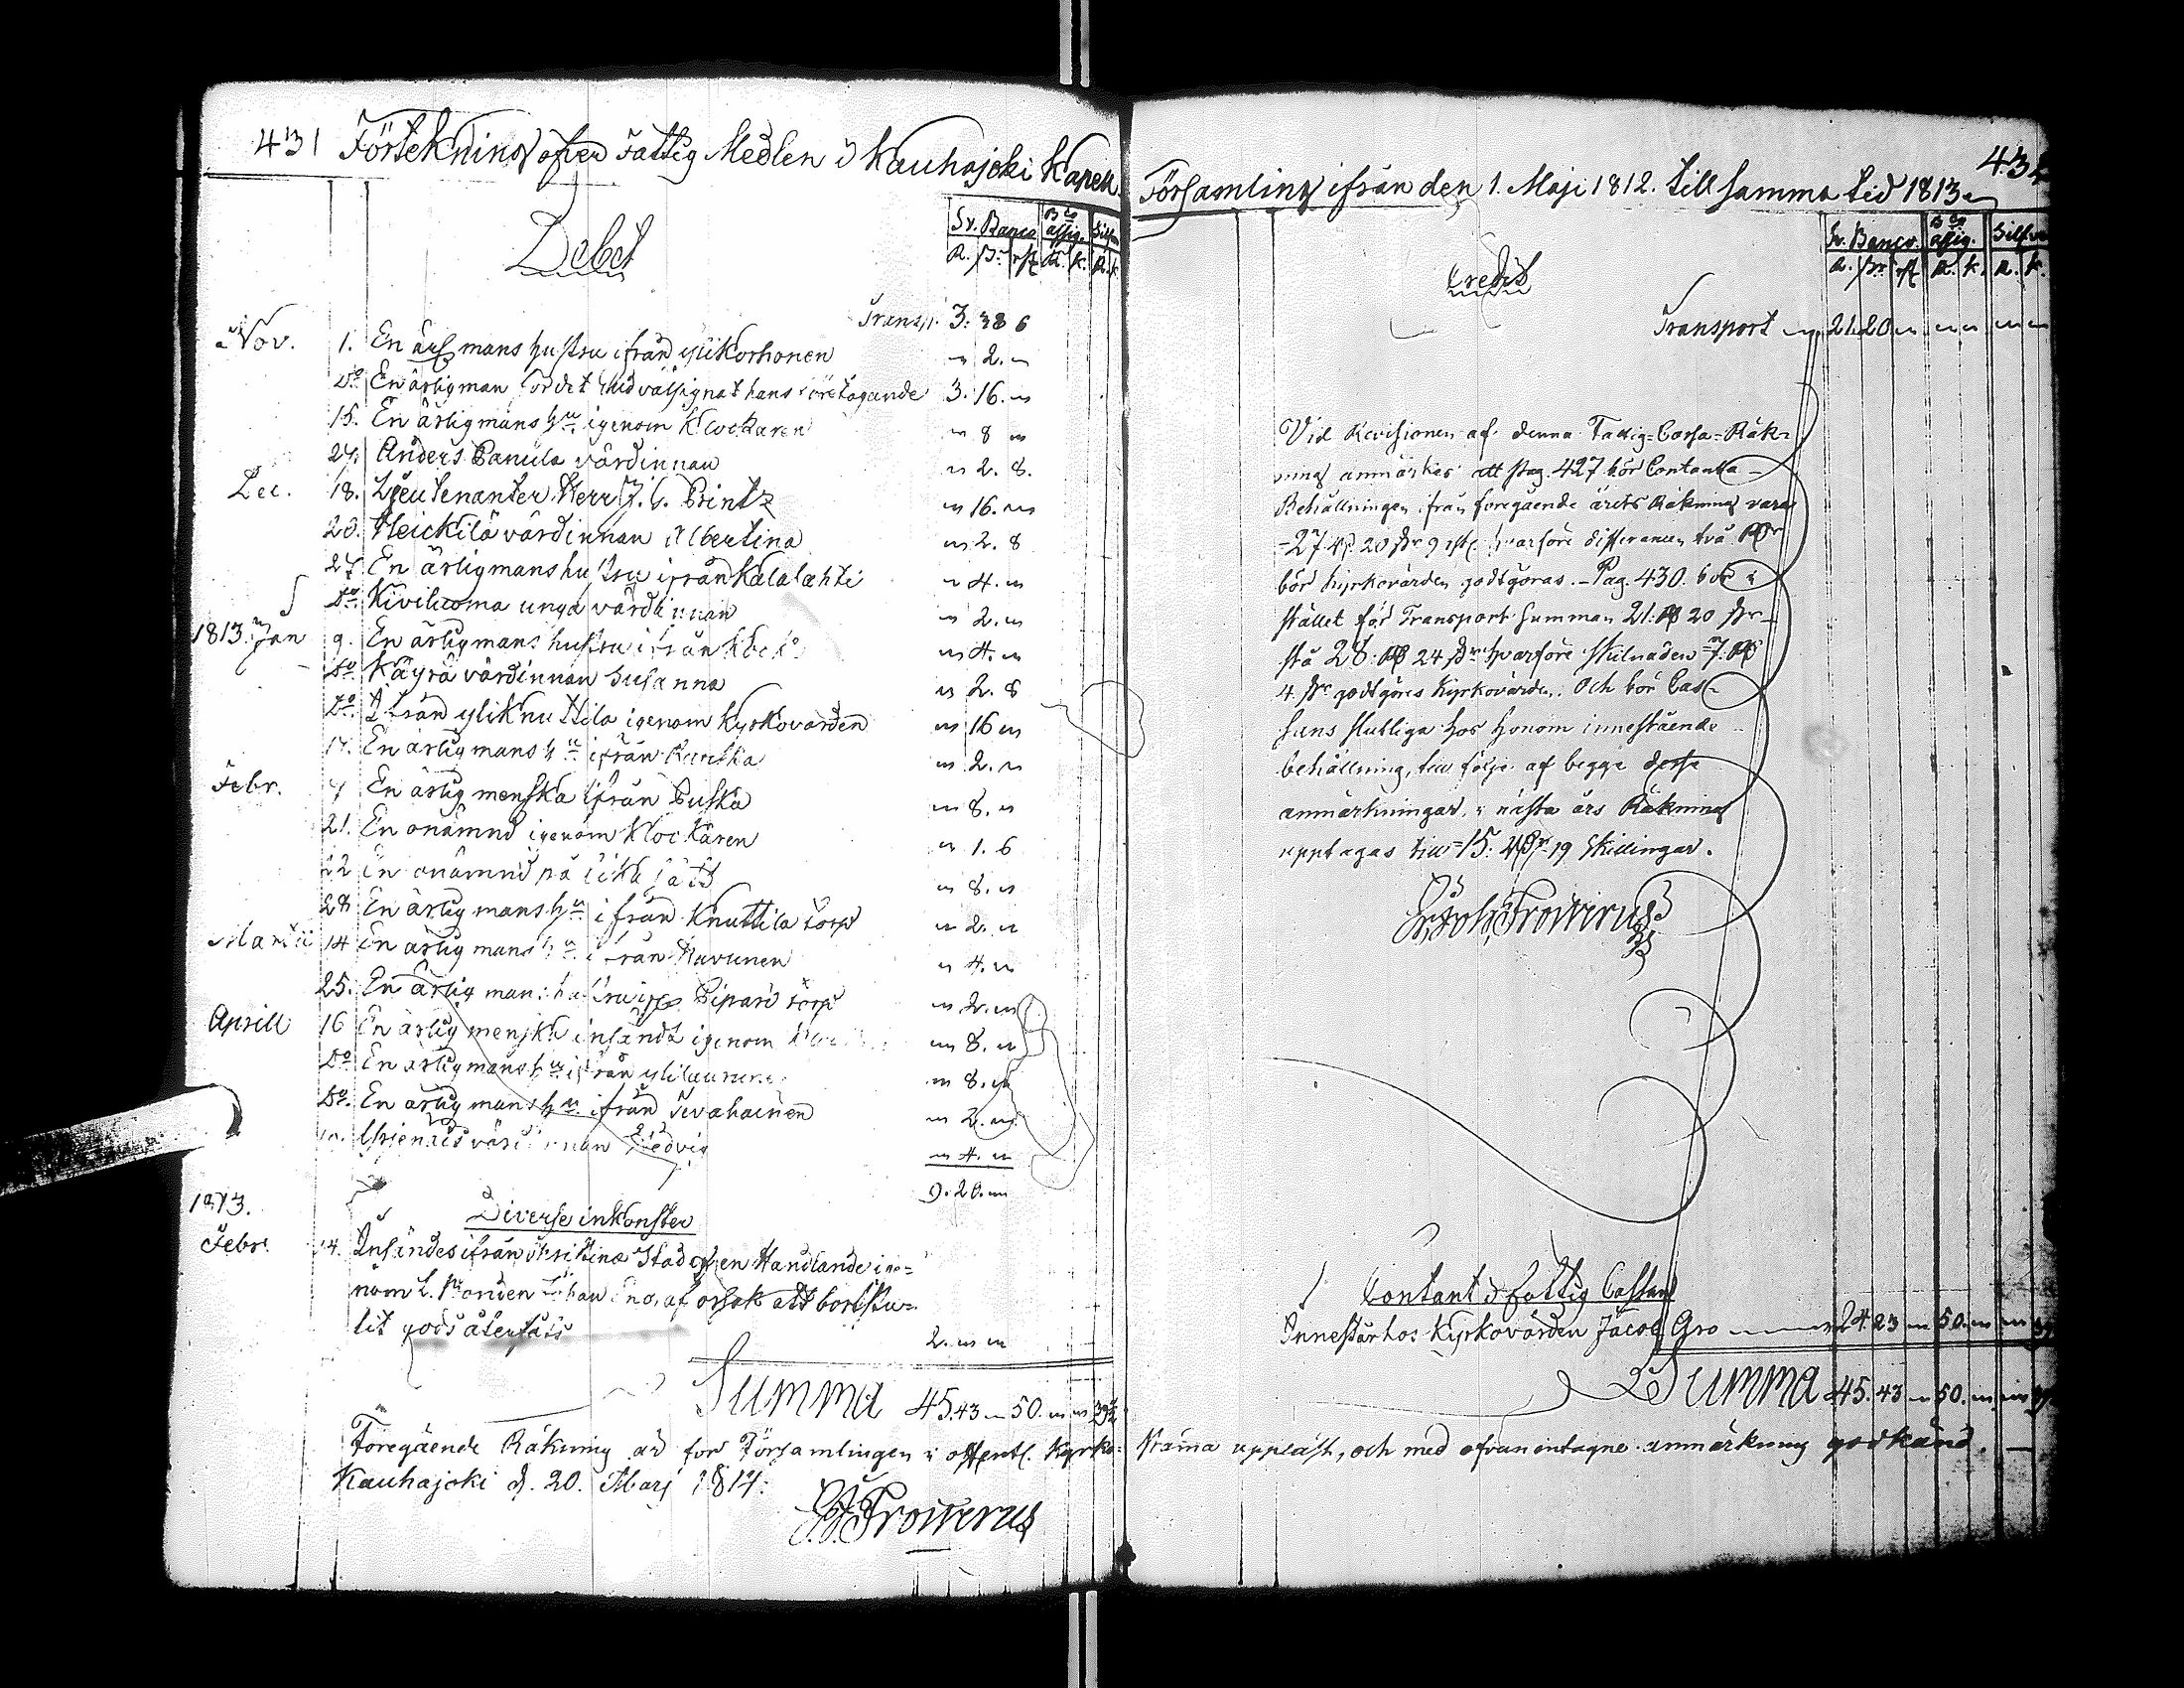 431 Förtekning öfver Fattig Medlen i Kauhajoki Kapell
Debet
Sv. Banco B co assig. Silfver
R. ßr. rst. R. K. R. K.
Transp. 3. 38 6
Nov. 1. En ärl. mans hustru ifrån yliKorhonen 2.
Do En ärlig man för det Gud välsignat hans företagande 3. 16.
15. En ärlig mans hu igenom Klockaren 8
24. Anders Panula värdinnan 2. 8.
Dec. 18. Lieutenanten Herr J. G. Printz 16.
20. Heickilä värdinnan Albertina 2. 8
27. En ärlig mans hustru ifrån Kalalahti 4.
Do Kiviluoma unga värdinnan 2.
1813. Jan 9. En ärlig mans hustru ifrån 4.
Do. Käyrä värdinnan Susanna 2. 8
Do. Ifrån yliKnuttila igenom Kyrkovärden 16
17. En ärlig mans hu ifrån 2.
Febr. 7 En ärlig menska ifrån Puska 8.
21. En onämnd igenom Klockaren 1. 6
22 En onämnd på lika sätt 8.
28 En ärlig mans hu ifrån Knuttila torp 2.
Martii 14 En ärlig mans hu ifrån Havunen 4.
25. En ärlig mans hustru ifrån Pipari torp 2.
Aprill 16 En ärlig menska insändt igenom 8.
Do En ärlig mans hu ifrån ylilaurila 8.
Do. En ärlig mans hu ifrån Tevahainen 2.
värdinnan Hedvig 4.
9. 20.
1813. Diverse inkonster
Febr. 14. Insändes ifrån Christinæ Stad af en Handlande ige=
nom L. Bonden Johan af orsak att bortstu=
lit gods återfåtts 2.
Summa 45. 43 50. 39½
Föregående Räkning är for Församlingen i offentl. Kyrko=
Kauhajoki d. 20. Marj 1814:
J. J. Frosterus
432
Församling ifrån den 1. Maji 1812. till samma tid 1813
Credit
Sv. Banco. B co assig. Silfver
R. ßr. rst. R. K. R. K.
Transport 21. 20
Vid Revisionen af denna Fattig=Cassa=Räk=
ning anmärkes att pag. 427 bör Contanta
Behållningen ifrån föregående årets Räkning vara
=27 Rd. 20 ßr 9 rst. hvarföre differancen två Rdr
bör kyrkovärden godtgöras. – Pag. 430. bör i
stället för Transport Summan 21: Rd 20 ßr
stå 28: Rd 24 ßr hvarföre skilnaden =7. Rd
4. ßr godtgöres Kyrkovärden. Och bör Cas=
sans slutliga hos honom innestående
behållning, till följe af begge desse
anmärkningar, i nästa års Räkning
upptagas till =15: Rdr. 19 Skillingar.
Frosterus
Contant i fattig Cassan
Innestår hos Kyrkovärden Jacob Gro 24. 23 50.
Summa 45. 43 50.
stämma uppläst, och med ofvan intagne anmärkning godkänd.